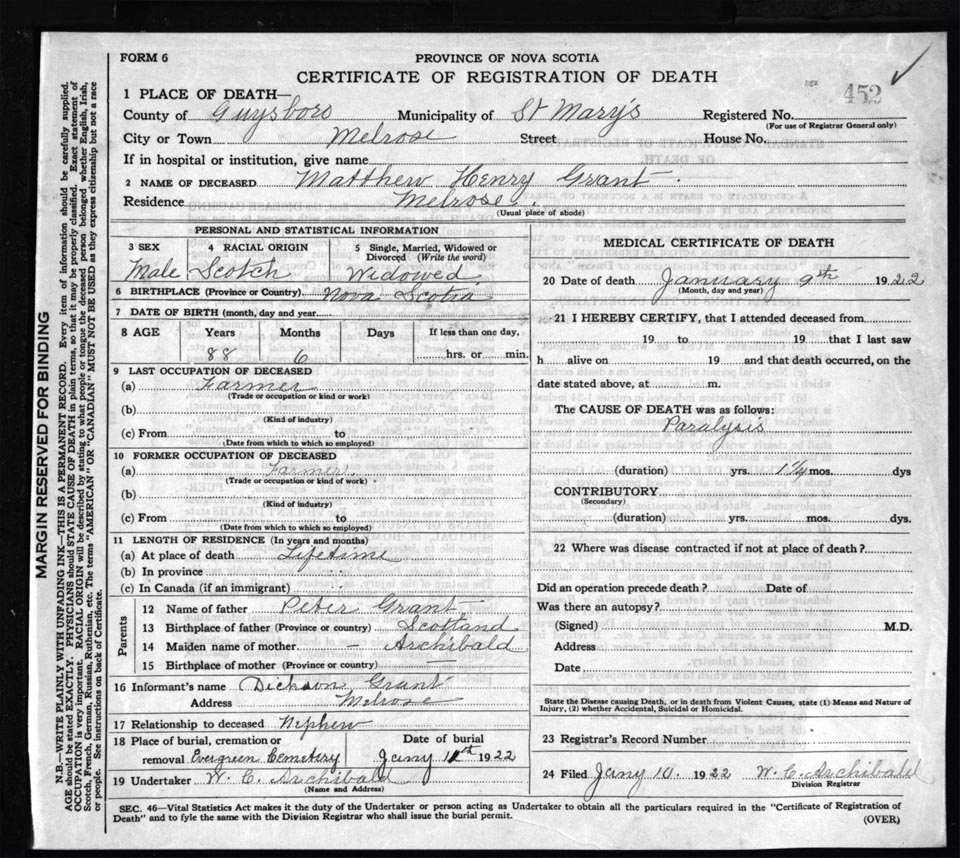 FORM 6
PROVINCE OF NOVA SCOTIA
CERTIFICATE OF REGISTRATION OF DEATH
452
1 PLACE OF DEATH—
County of Guysboro Municipality of St Mary's Registered No.
(For use of Registrar General only)
City or Town Melrose Street House No.
If in hospital or institution, give name
2 NAME OF DECEASED Matthew Henry Grant
Residence Melrose
(Usual place of abode)
PERSONAL AND STATISTICAL INFORMATION
3 SEX 4 RACIAL ORIGIN 5 Single, Married, Widowed or Divorced (Write the word)
Male Scotch Widowed
6 BIRTHPLACE (Province or Country) Nova Scotia
7 DATE OF BIRTH (month, day and year)
8 AGE Years Months Days If less than one day,
88 6 hrs. or min.
9 LAST OCCUPATION OF DECEASED
(a) Farmer
(Trade or occupation or kind or work)
(b)
(Kind of industry)
(c) From to
(Date from which to which so employed)
10 FORMER OCCUPATION OF DECEASED
(a) Farmer
(Trade or occupation or kind of work)
(b)
(Kind of industry)
(c) From to
(Date from which to which so employed)
11 LENGTH OF RESIDENCE (In years and months)
(a) At place of death Lifetime
(b) In province "
(c) In Canada (if an immigrant) "
Parents
12 Name of father Peter Grant
13 Birthplace of father (Province or country) Scotland
14 Maiden name of mother — Archibald
15 Birthplace of mother (Province or country) —
16 Informant's name Dickson Grant
Address Melrose
17 Relationship to deceased Nephew
18 Place of burial, cremation or removal Evergreen Cemetery Date of burial Jany 11th 1922
19 Undertaker W. C. Archibald
(Name and Address)
MEDICAL CERTIFICATE OF DEATH
20 Date of death January 9th 1922
(Month, day and year)
21 I HEREBY CERTIFY, that I attended deceased from
19 to 19 that I last saw
h alive on 19 and that death occurred, on the
date stated above, at m.
The CAUSE OF DEATH was as follows:
Paralysis
(duration) yrs. mos. dys
CONTRIBUTORY
(Secondary)
(duration) yrs. mos. dys.
22 Where was disease contracted if not at place of death?
Did an operation precede death? Date of
Was there an autopsy?
(Signed) M.D.
Address
Date
State the Disease causing Death, or in death from Violent Causes, state (1) Means and Nature of
Injury, (2) whether Accidental, Suicidal or Homicidal.
23 Registrar's Record Number
24 Filed Jany 10. 1922 W. C. Archibald
Division Registrar
SEC. 46—Vital Statistics Act makes it the duty of the Undertaker or person acting as Undertaker to obtain all the particulars required in the "Certificate of Registration of
Death" and to fyle the same with the Division Registrar who shall issue the burial permit.
(OVER)
MARGIN RESERVED FOR BINDING
N.B.—WRITE PLAINLY WITH UNFADING INK—THIS IS A PERMANENT RECORD. Every item of information should be carefully supplied.
AGE should be stated EXACTLY. PHYSICIANS should STATE CAUSE OF DEATH in plain terms, so that it may be properly classified. Exact statement of
OCCUPATION is very important. RACIAL ORIGIN will be described by stating to what people or tongue the deceased person belonged whether English, Irish,
Scotch, French, German, Russian, Ruthenian, etc. The terms "AMERICAN" OR "CANADIAN" MUST NOT BE USED as they express citizenship but not a race
or people. See instructions on back of Certificate.